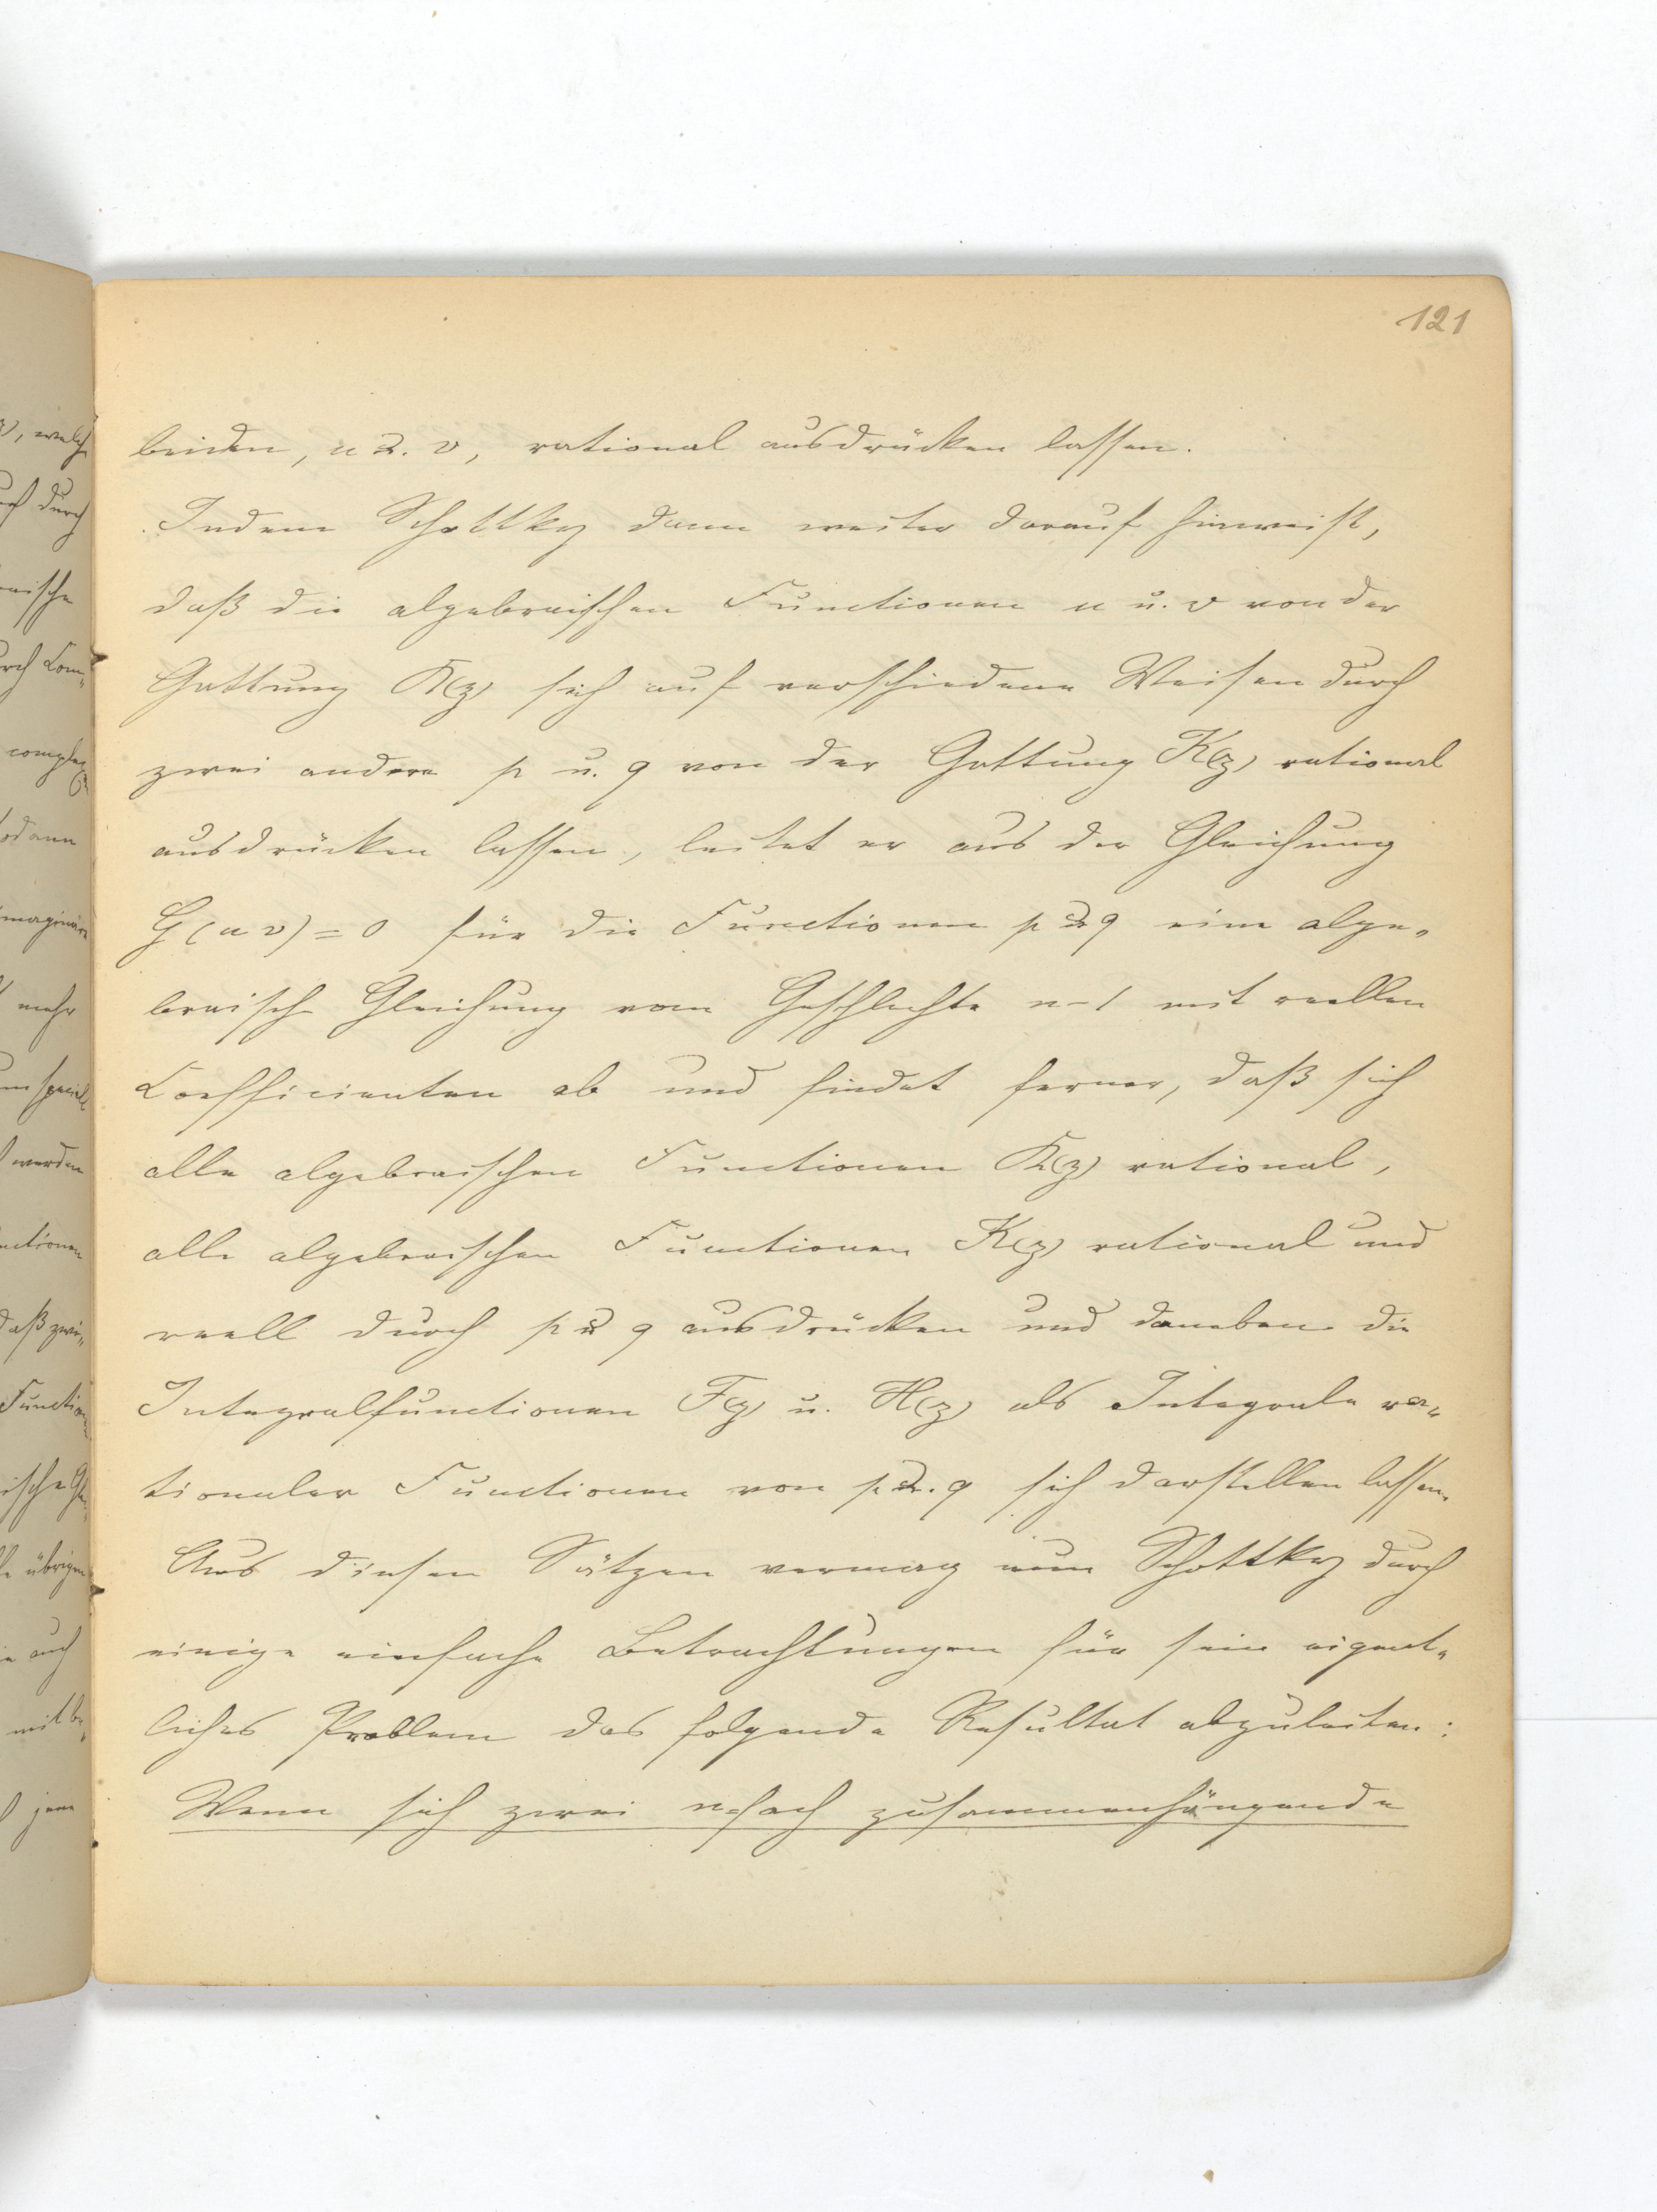 121
beiden, u u. v, rational ausdrücken lassen.
Indem Schottky dann weiter darauf hinweist,
daß die algebraischen Functionen u u. v von der
Gattung K(z) sich auf verschiedene Weisen durch
zwei andere p u. q von der Gattung K(z) rational
ausdrücken lassen, leitet er aus der Gleichung
G(u v) = 0 für die Functionen p u q eine alge-
braische Gleichung vom Geschlechte n-1 mit reellen
Coefficienten ab und findet ferner, daß sich
alle algebraischen Functionen K(z) rational,
alle algebraischen Functionen K(z) rational und
reell durch p u q ausdrücken und daneben die
Integralfunctionen F(z) u. H(z) als Integrale ra-
tionaler Functionen von p u. q sich darstellen lassen.
Aus diesen Sätzen vermag nun Schottky durch
einige einfache Betrachtungen für sein eigent-
liches Problem das folgende Resultat abzuleiten:
Wenn sich zwei n-fach zusammenhängende